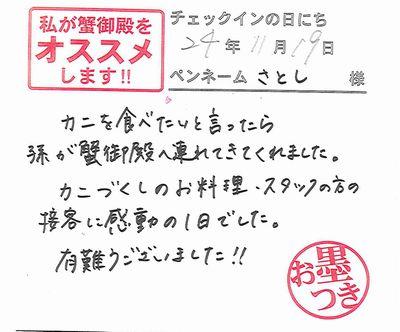 私が蟹御殿を
オススメ
します!!
チェックインの日にち
24年11月19日
ペンネーム さとし 様
カニを食べたいと言ったら
孫が蟹御殿へ連れてきてくれました。
カニづくしのお料理・スタッフの方の
接客に感動の1日でした。
有難うございました!!
お墨
つき